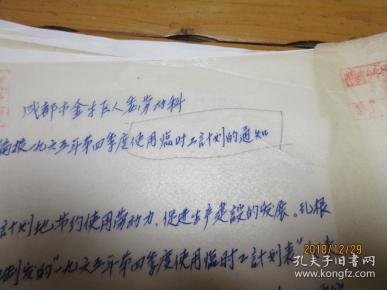 成都市金牛区人委劳动科
编报一九六五年第四季度使用临时工計划的通知
計划地节约使用劳动力、促进生产建設的发展。现根
制发的"一九六五年第四季度使用临时工計划表"
2019/12/29
孔夫子旧书网